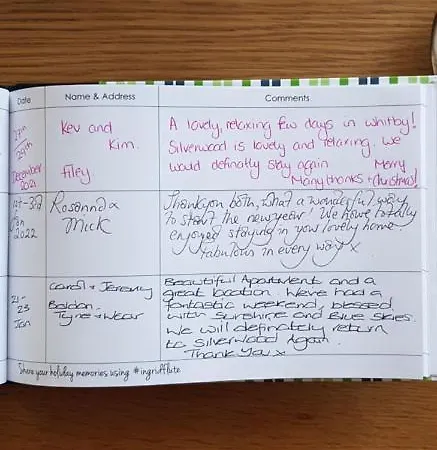 Date Name & Address Comments
27th
29th
December
2021
Kev and
Kim.
Filey
A lovely, relaxing few days in Whitby!
Silverwood is lovely and relaxing. We
would definatly stay again
Merry
Many thanks + Christmas!
1st - 3rd
Jan
2022
Rosanna &
Mick
Thankyou both, what a wonderful way
to start the new year! We have totally
enjoyed staying in your lovely home.
Fabulous in every way x
21 -
23
Jan
Carol + Jeremy
Boldon.
Tyne + Wear
Beautiful Apartment and a
great location. We've had a
fantastic weekend, blessed
with sunshine and Blue skies.
We will definately return
to Silverwood Again.
Thank You x
Share your holiday memories using #ingridflute